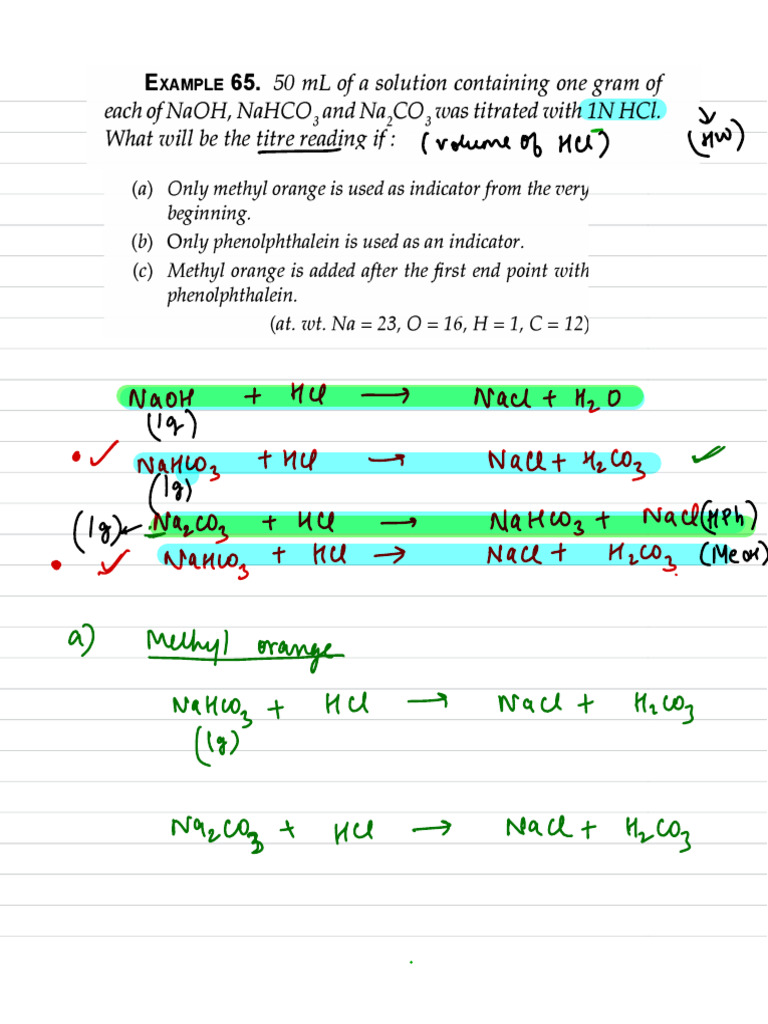 EXAMPLE 65. 50 mL of a solution containing one gram of
each of NaOH, NaHCO₃ and Na₂CO₃ was titrated with 1N HCl.
What will be the titre reading if : (volume of HCl) (HW)
(a) Only methyl orange is used as indicator from the very
beginning.
(b) Only phenolphthalein is used as an indicator.
(c) Methyl orange is added after the first end point with
phenolphthalein.
(at. wt. Na = 23, O = 16, H = 1, C = 12)
NaOH + HCl → NaCl + H₂O
(1g)
NaHCO₃ + HCl → NaCl + H₂CO₃
(1g)
(1g) ← Na₂CO₃ + HCl → NaHCO₃ + NaCl (HPh)
NaHCO₃ + HCl → NaCl + H₂CO₃ (MeOH)
a) Methyl orange
NaHCO₃ + HCl → NaCl + H₂CO₃
(1g)
Na₂CO₃ + HCl → NaCl + H₂CO₃